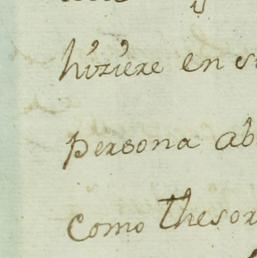 hiziere en
persona ab
como thesor